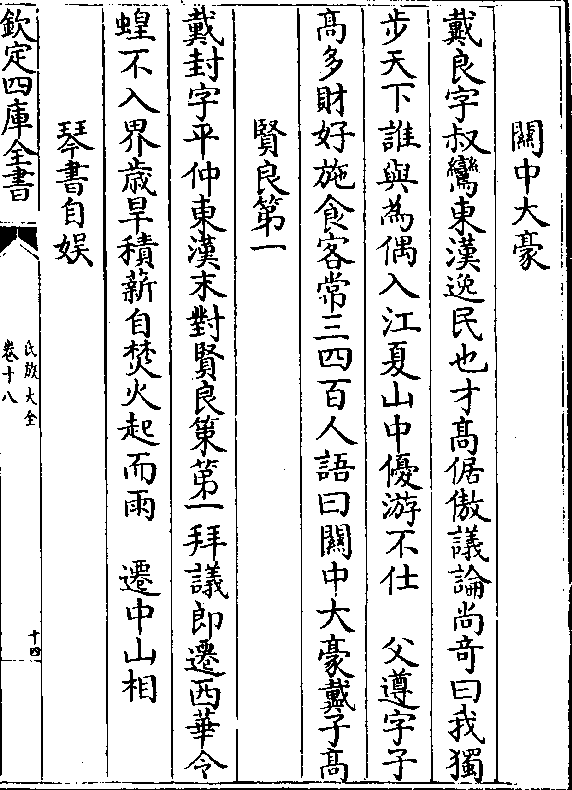 關中大豪
戴良字叔鸞東漢逸民也才髙倨傲議論尚竒曰我獨
步天下誰與為偶入江夏山中優游不仕　父遵字子
髙多財好施食客常三四百人語曰關中大豪戴子髙
賢良第一
戴封字平仲東漢末對賢良策第一拜議郎遷西華令
蝗不入界歳旱積薪自焚火起而雨　遷中山相
琴書自娱
欽定四庫全書
氏族大全
卷十八
十四